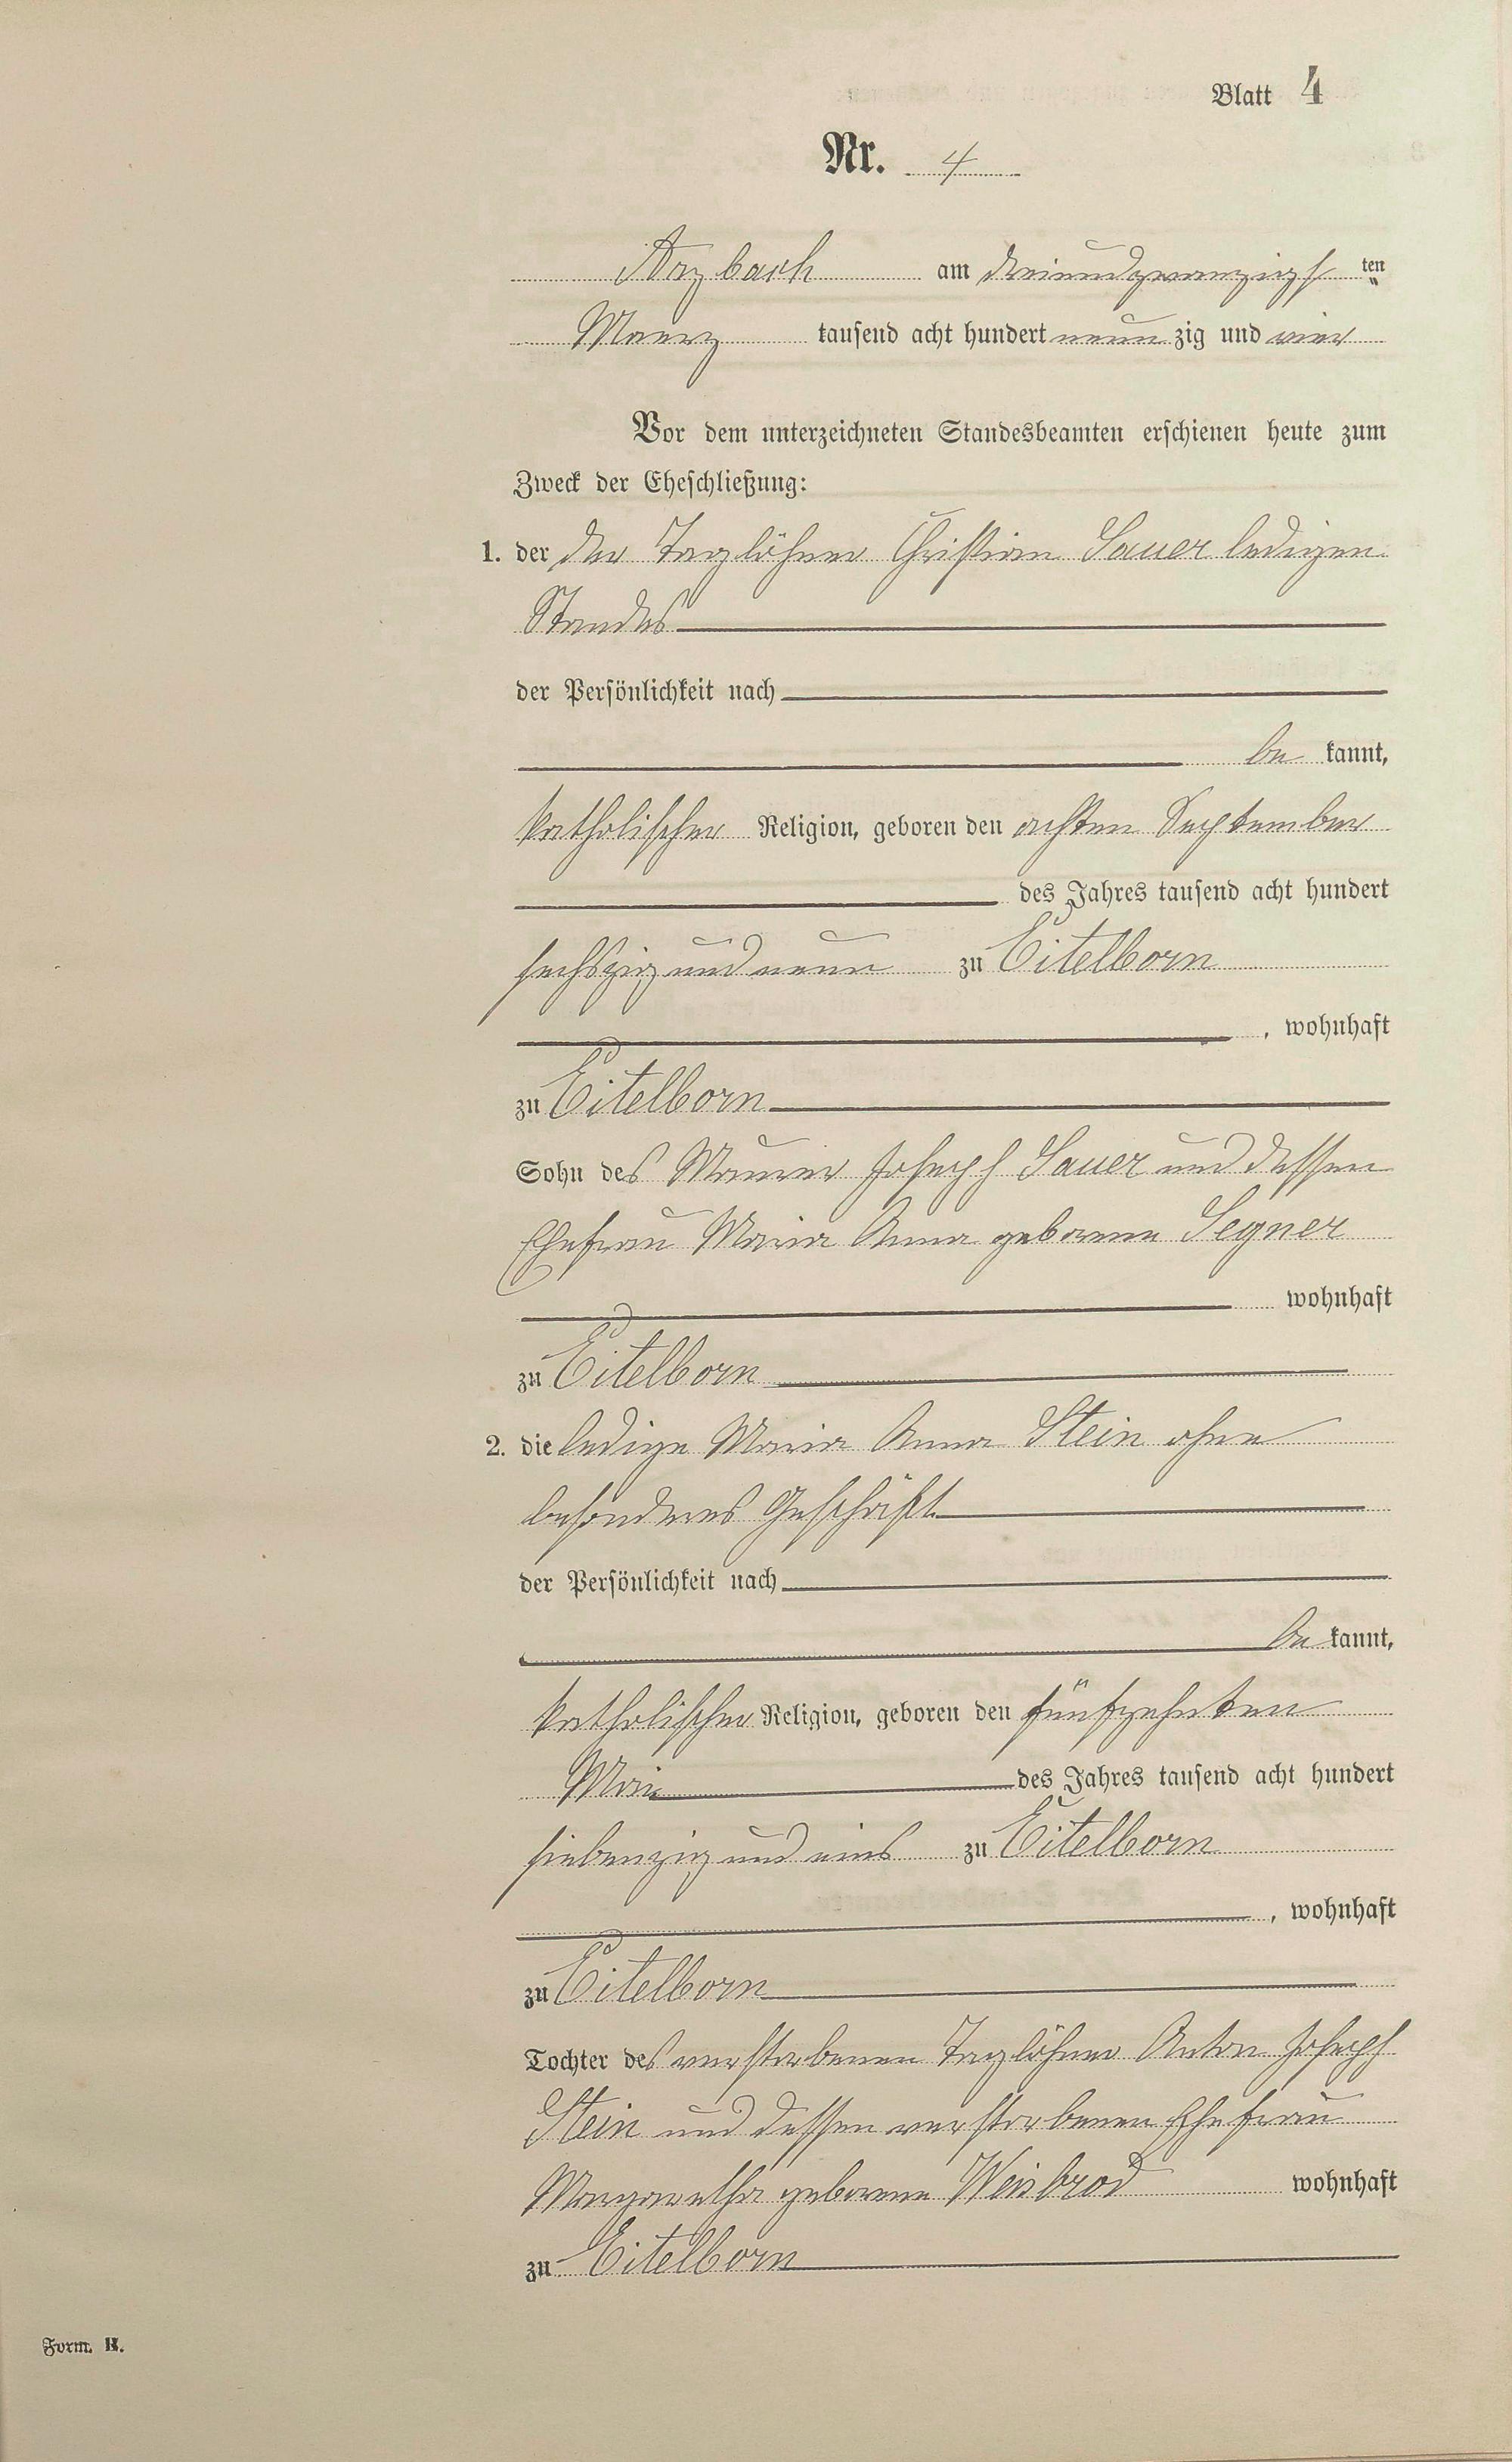 Blatt 4
Nr. 4
Arzbach am dreiundzwanzigs ten
Maerz tausend acht hundert neun zig und vier
Vor dem unterzeichneten Standesbeamten erschienen heute zum
Zweck der Eheschließung:
1. der der Taglöhner Christian Sauer ledigen
Standes
der Persönlichkeit nach
be kannt,
katholischer Religion, geboren den achten September
des Jahres tausend acht hundert
sechszig und neun zu Eitelborn
, wohnhaft
zu Eitelborn
Sohn des Maurer Joseph Sauer und dessen
Ehefrau Maria Anna geborene Segner
wohnhaft
zu Eitelborn
2. die ledige Maria Anna Stein ohne
besonderes Geschäft
der Persönlichkeit nach
be kannt,
katholischer Religion, geboren den fünfzehnten
Mai des Jahres tausend acht hundert
siebenzig und eins zu Eitelborn
, wohnhaft
zu Eitelborn
Tochter des verstorbenen Taglöhner Anton Joseph
Stein und dessen verstorbenen Ehefrau
Margaretha geborene Weisbrod wohnhaft
zu Eitelborn
Form. B.